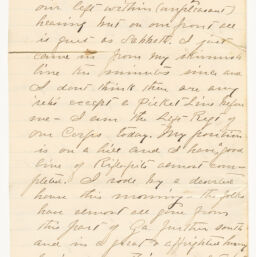 our left within (unpleasant)
hearing but on our front all
is quiet as Sabbath. I just
came in from my skirmish
line ten minutes since and
I dont think there are any
rebs except a Picket Line before
me - I am the Left Regt of
our Corps today. My position
is on a hill and I have a good
line of Riflepits almost com-
pleted. I rode by a deserted
house this morning - the folks
have almost all gone from
this part of Ga. further south
and in a great affrighted hurry